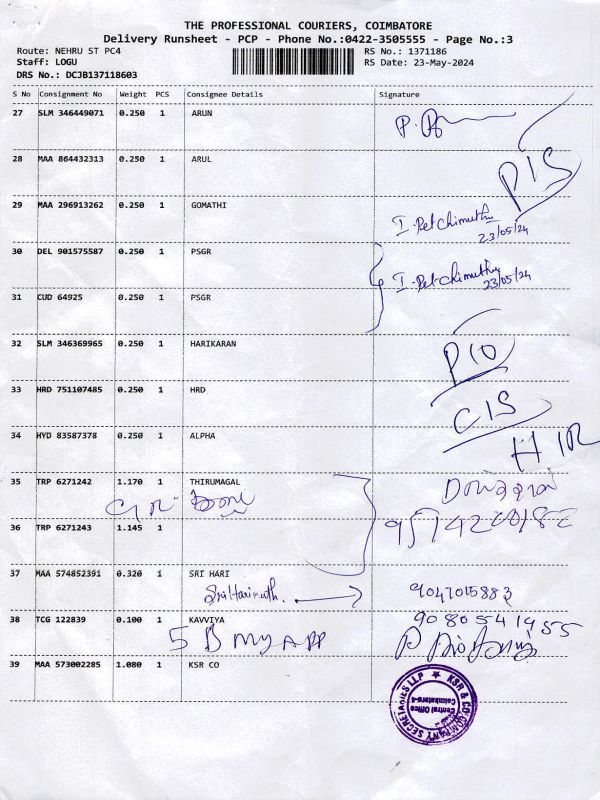 THE PROFESSIONAL COURIERS, COIMBATORE
Delivery Runsheet - PCP - Phone No.:0422-3505555 - Page No.:3
Route: NEHRU ST PC4 RS No.: 1371186
Staff: LOGU RS Date: 23-May-2024
DRS No.: DCJB137118603
S No Consignment No Weight PCS Consignee Details Signature
27 SLM 346449071 0.250 1 ARUN
28 MAA 864432313 0.250 1 ARUL
P1S
29 MAA 296913262 0.250 1 GOMATHI I. Petchimuthu
23/05/24
30 DEL 901575587 0.250 1 PSGR I. Petchimuthu
23/05/24
31 CUD 64925 0.250 1 PSGR
32 SLM 346369965 1 HARIKARAN
P10
33 HRD 751107485 0.250 1 HRD
C1S
34 HYD 83587378 0.250 1 ALPHA
H
35 TRP 6271242 1.170 1 THIRUMAGAL
36 TRP 6271243 1.145 1
37 MAA 574852391 0.320 1 SRI HARI
9047015883
38 TCG 122839 0.100 1 KAVVIYA
9080541955
5 B my APP
39 MAA 573002285 1.080 1 KSR CO
KSR & CO COMPANY SECRETARIES LLP
Central Office
Coimbatore-4